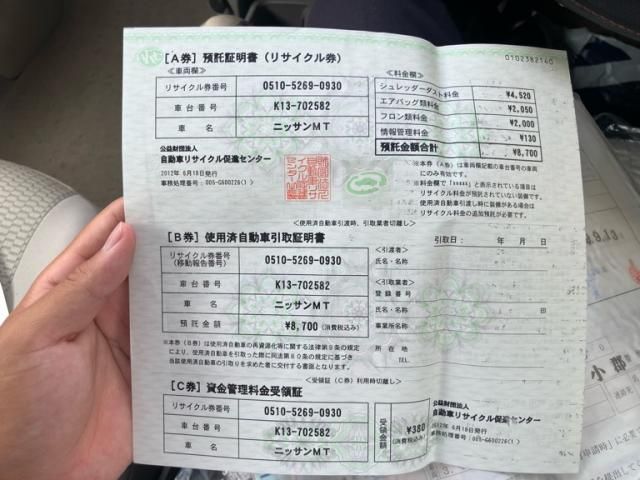 [A券] 預託証明書 (リサイクル券)
0102382140
≪車両欄≫
リサイクル券番号 0510-5269-0930
車台番号 K13-702582
車名 ニッサンMT
≪料金欄≫
シュレッダーダスト料金 ¥4,520
エアバッグ類料金 ¥2,050
フロン類料金 ¥2,000
情報管理料金 ¥130
預託金額合計 ¥8,700
公益財団法人
自動車リサイクル促進センター
2012年 6月18日発行
事務処理番号:005-G600226(1)
※本券(A券)は車両欄記載の車台番号の車両
にのみ有効です。
※料金欄で「*****」と表示されている項目は
リサイクル料金が預託されていない装備です。
使用済自動車引渡し時に装備がある場合は
リサイクル料金の追加預託が必要です。
<使用済自動車引渡時、引取業者切離し>
[B券] 使用済自動車引取証明書
引取日: 年 月 日
リサイクル券番号
(移動報告番号)
0510-5269-0930
車台番号 K13-702582
車名 ニッサンMT
預託金額 ¥8,700 (消費税込み)
<引渡者>
氏名・名称
<引取業者>
登録番号
氏名・名称 印
事業所名称
所在地
TEL.
※本券(B券)は使用済自動車の再資源化等に関する法律第9条の規定
により、使用済自動車を引取った際に同法第80条の規定に基づき
当該使用済自動車の引取りを求めた者に交付する書面となります。
<受領証(C券)利用時切離し>
[C券] 資金管理料金受領証
リサイクル券番号 0510-5269-0930
車台番号 K13-702582
車名 ニッサンMT
受領金額
¥380
(消費税込み)
公益財団法人
自動車リサイクル促進センター
2012年 6月18日発行
事務処理番号:005-G600226(1)
9.13
小郡